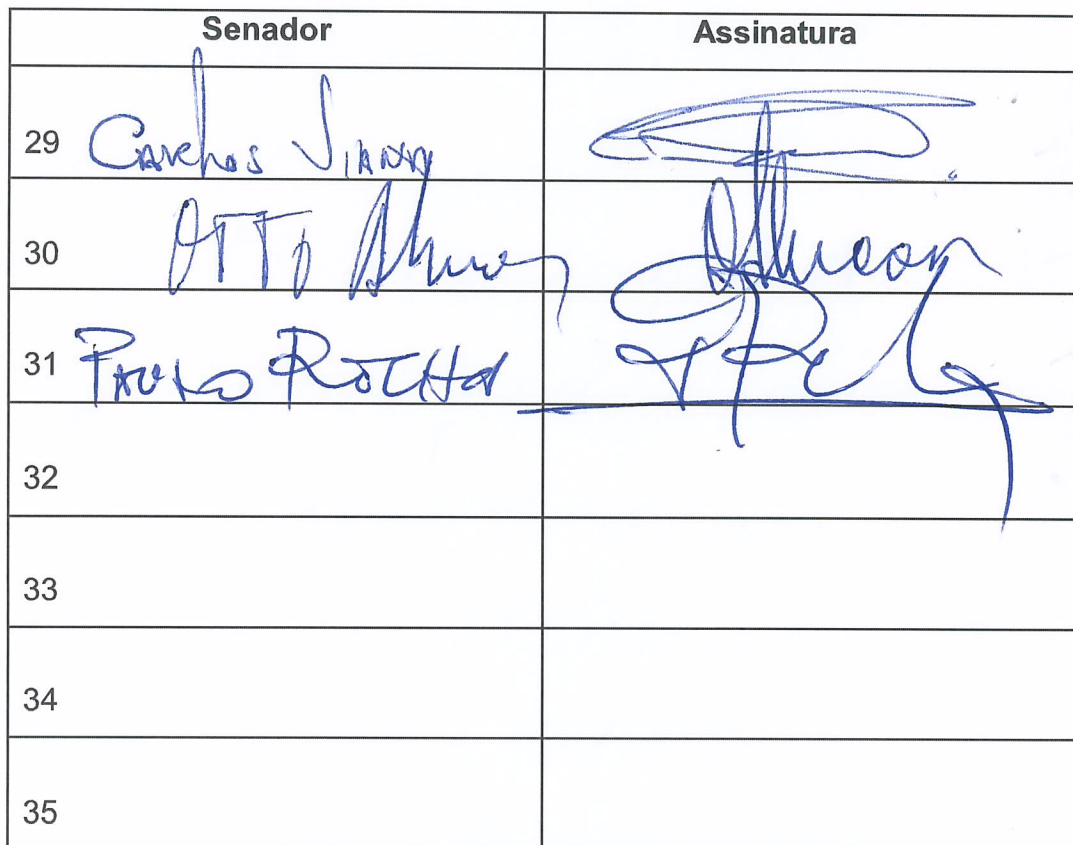 Senador Assinatura
29 Carlos Viana
30 OTTO Alencar
31 PAULO ROCHA
32
33
34
35